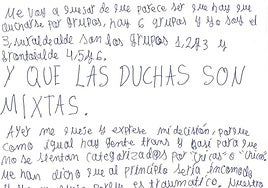 Me voy a quejar de que parece ser que hay que
ducharse por grupos, hay 6 grupos y yo soy el
3, suraldealde son los grupos 1,2 y 3 y
frontoialde 4,5 y 6.
Y QUE LAS DUCHAS SON
MIXTAS.
Ayer me queje y exprese mi decisión, porque
como igual hay gente trans y pasi para que
no se sientan categorizados por "chicas" o "chicos"
me han dicho que al principio sería incomodo
y es traumatico, nuestro